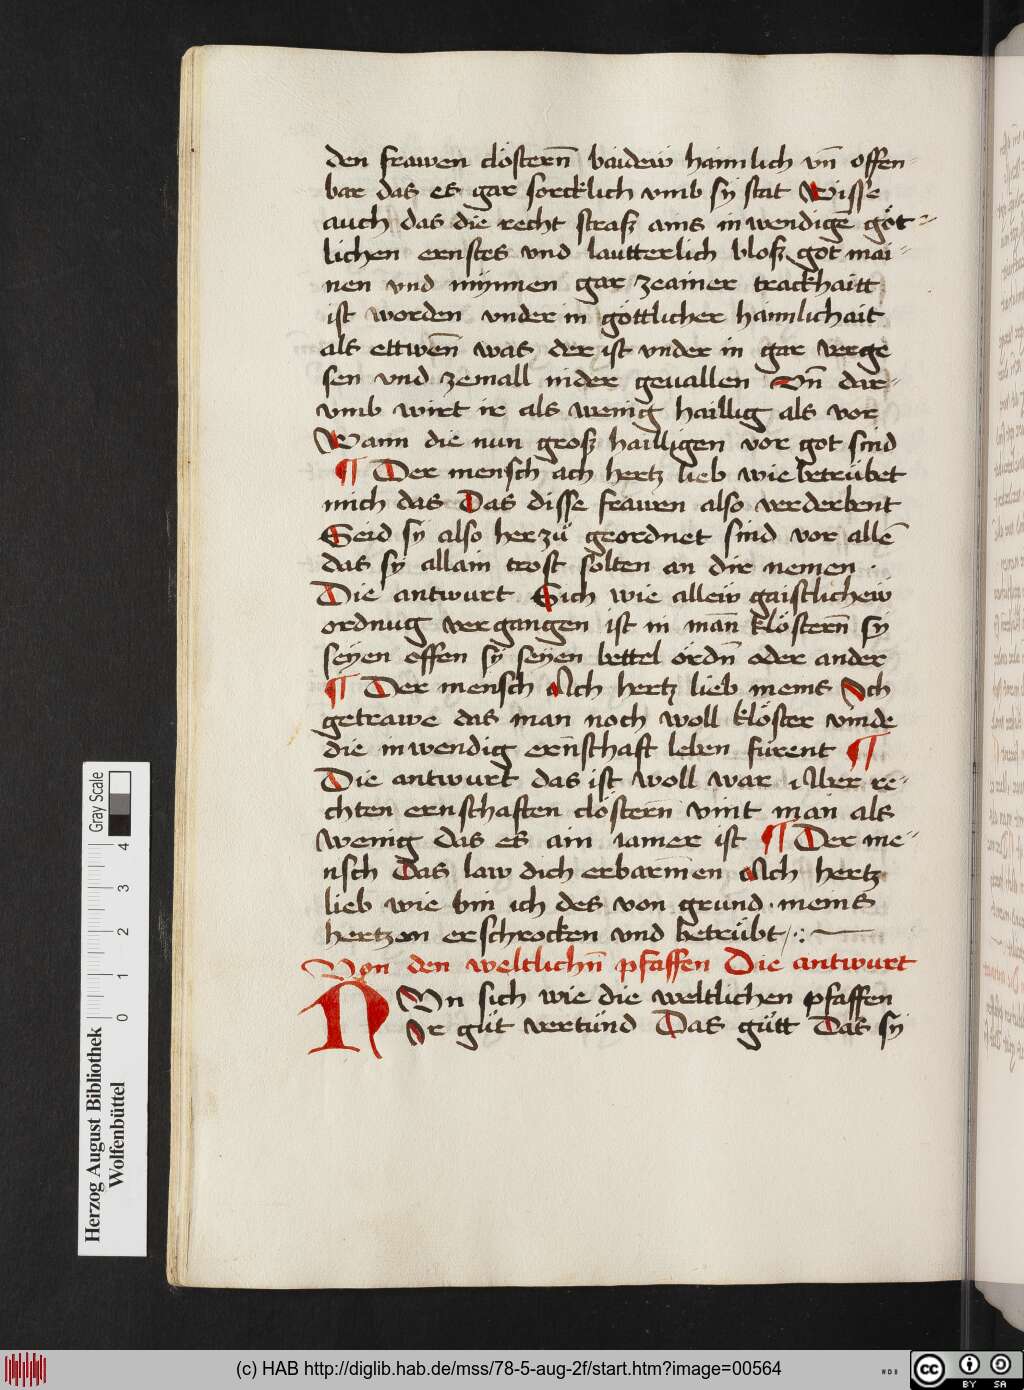 den frawen clöstern̄ baidew̋ haimlich vn̄ offen⸗
bar das es gar sorcklich vmb sÿ stat Wisse
auch das die recht straß ains inwendigē göt⸗
lichen ernstes vnd lautterlich bloß got mai⸗
nen vnd mÿnnen gar zeainer trackhaitt
ist worden vnder in göttlicher haimlichait
als ettwen̄ was der ist vnder in gar verge
sen vnd zemall nider geuallen Vn̄ dar⸗
vmb wirt ir als wenig haillig als vor
Wann die nun groß hailligen vor got sind
¶ Der mensch ach hertz lieb wie betrübet
mich das Das disse frawen also verderbent
Seid sÿ also her zů geordnet sind vor allē
das sÿ allain trost solten an dir nemen .
Die antwurt Sich wie allew̋ gaistlichew̋
ordnug vergangen ist in man̄ klöstern̄ sÿ
seÿen offen sÿ seÿen bettel ördn̄ oder ander
¶ Der mensch Ach hertz lieb meins Ich
getrawe das man noch woll klöster vinde
die inwendig ernschaft leben fürent ¶
Die antwurt das ist woll war , Aber re⸗
chten ernschaften clöstern vint man als
wenig das es ain iamer ist ¶ Der me⸗
nsch Das law dich erbarmen Ach hertz
lieb wie bin ich des von grund . meins
hertzen erschrocken vnd betrübt
Von den weltlichn̄ pfaffen Die antwurt
NVn sich wie die weltlichen pfaffen
Ir gůt vertůnd Das gůtt Das sÿ
Gray Scale
0 1 2 3 4
Herzog August Bibliothek
Wolfenbüttel
(c) HAB http://diglib.hab.de/mss/78-5-aug-2f/start.htm?image=00564
WDB
cc BY SA